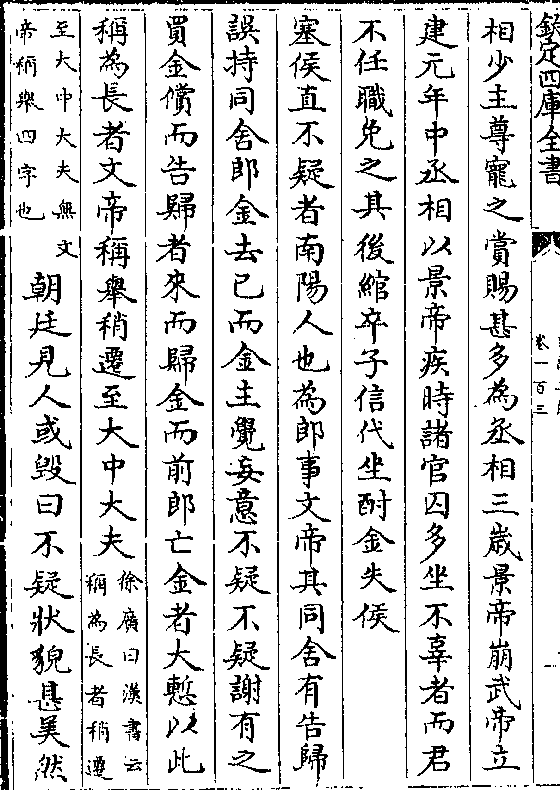 欽定四庫全書
卷一百三
相少主尊寵之賞賜甚多為丞相三歲景帝崩武帝立
建元年中丞相以景帝疾時諸官囚多坐不辜者而君
不任職免之其後綰卒子信代坐酎金失侯
塞侯直不疑者南陽人也為郎事文帝其同舍有告歸
誤持同舍郎金去已而金主覺妄意不疑不疑謝有之
買金償而告歸者來而歸金而前郎亡金者大慙以此
稱為長者文帝稱舉稍遷至大中大夫
徐廣曰漢書云
稱為長者稍遷
至大中大夫無文
帝稱舉四字也
朝廷見人或毀曰不疑狀貌甚美然